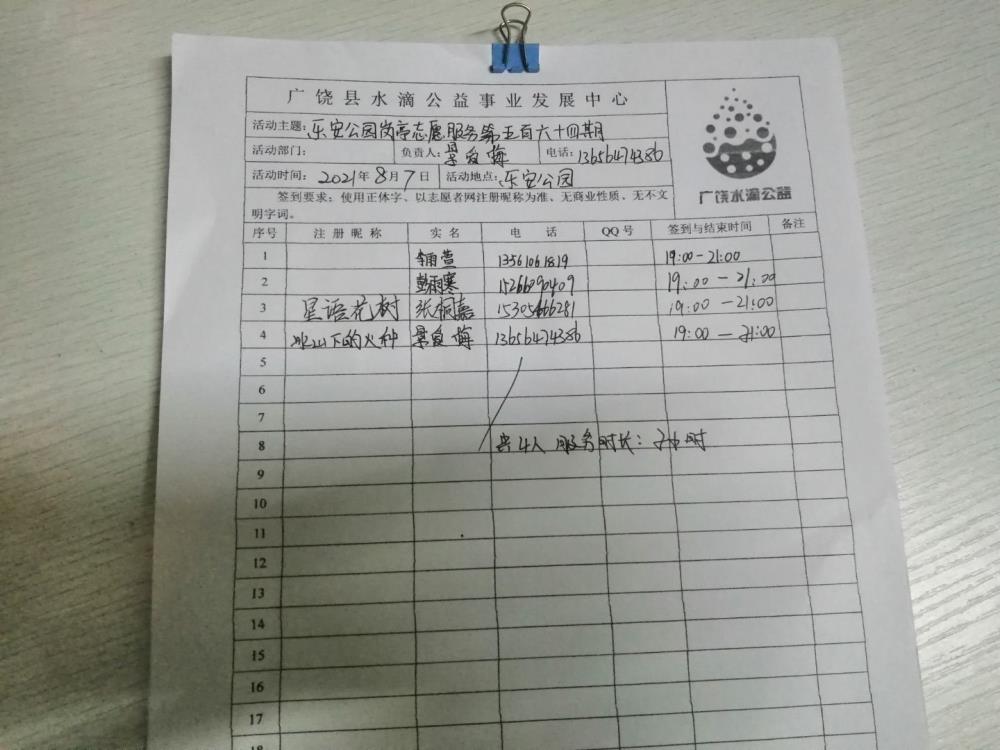 广饶县水滴公益事业发展中心
活动主题：乐安公园岗亭志愿服务第五百六十四期
活动部门： 负责人：景爱梅 电话：13656474386
活动时间：2021年8月7日 活动地点：乐安公园
签到要求：使用正体字、以志愿者网注册昵称为准、无商业性质、无不文
明字词。
广饶水滴公益
序号 注册昵称 实名 电话 QQ号 签到与结束时间 备注
1 13561061819 19:00-21:00
2 彭雨寒 15266090409 19:00-21:00
3 星语花树 张桐嘉 15305466281 19:00-21:00
4 冰山下的火种 景爱梅 13656474386 19:00-21:00
5
6
7
8 共4人 服务时长：小时
9
10
11
12
13
14
15
16
17
18